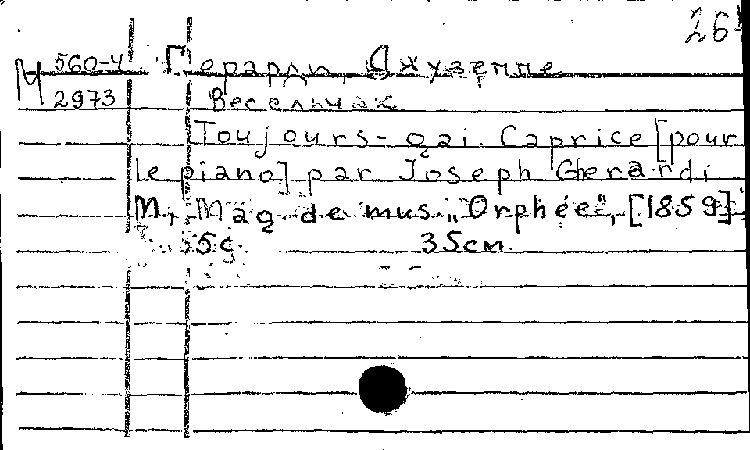 26
М 560-4 Герарди, Джузеппе
2973 Весельчак
Toujours-gai. Caprice [pour
le piano] par Joseph Gherardi
M., Mag. de mus. „Orphée“, [1859].
5 с. 35см.